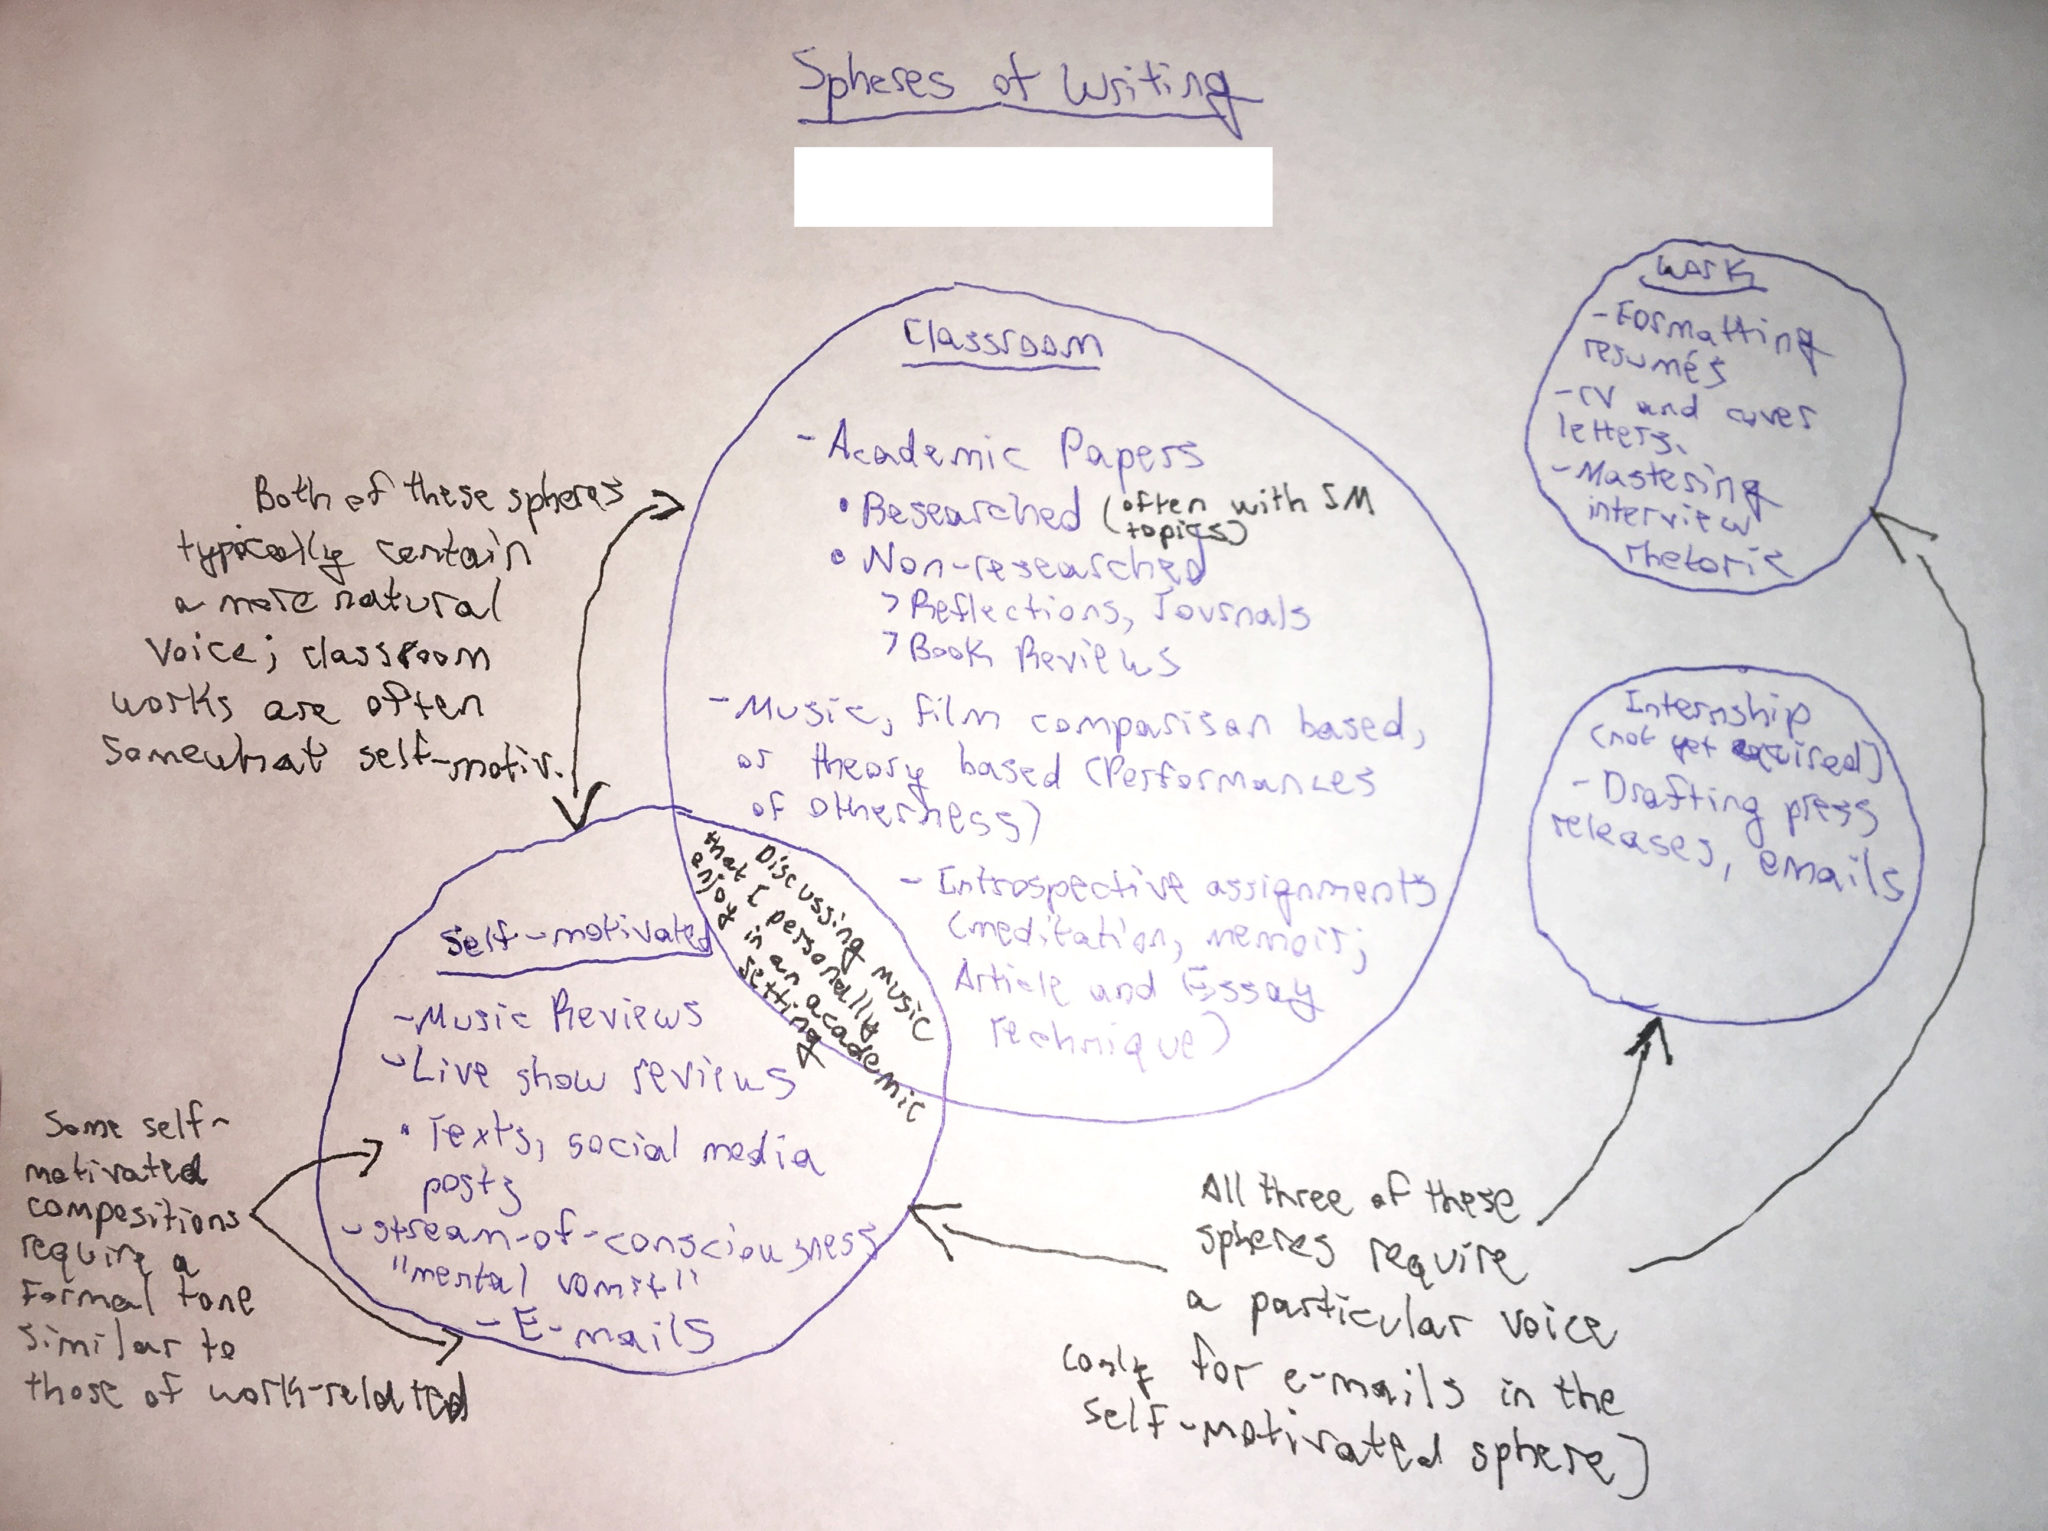 Spheres of Writing
Classroom
- Academic Papers
• Researched (often with SM
topics)
• Non-researched
> Reflections, Journals
> Book Reviews
- Music, film comparison based,
or theory based (Performances
of Otherness)
- Introspective assignments
(meditation, memoir;
Article and Essay
Technique)
Work
- Formatting
resumés
- CV and cover
letters.
- Mastering
interview
rhetoric
Internship
(not yet
- Drafting press
releases, emails
Both of these spheres
typically contain
a more natural
voice; classroom
works are often
somewhat self-motiv.
Discussing music
that I personally
enjoy in an academic
setting
Self-motivated
- Music Reviews
- Live show reviews
• Texts, social media
posts
- stream-of-consciousness
"mental vomit"
- E-mails
Some self-
motivated
compositions
require a
formal tone
similar to
those of work-related
All three of these
spheres require
a particular voice
(only for e-mails in the
self-motivated sphere)